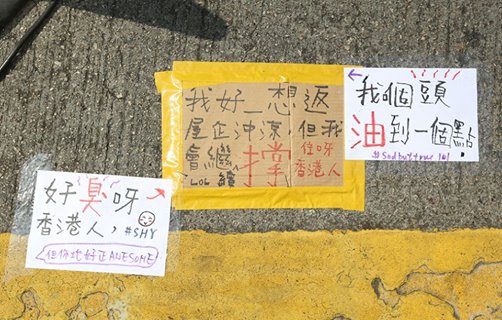 我好_想返
屋企沖涼但我
會繼續撐住呀
LOL
香港人
我個頭
油到一個點!
#Sadbuttrue lol
好臭呀
香港人,#SHY
但你地好正AWESOME